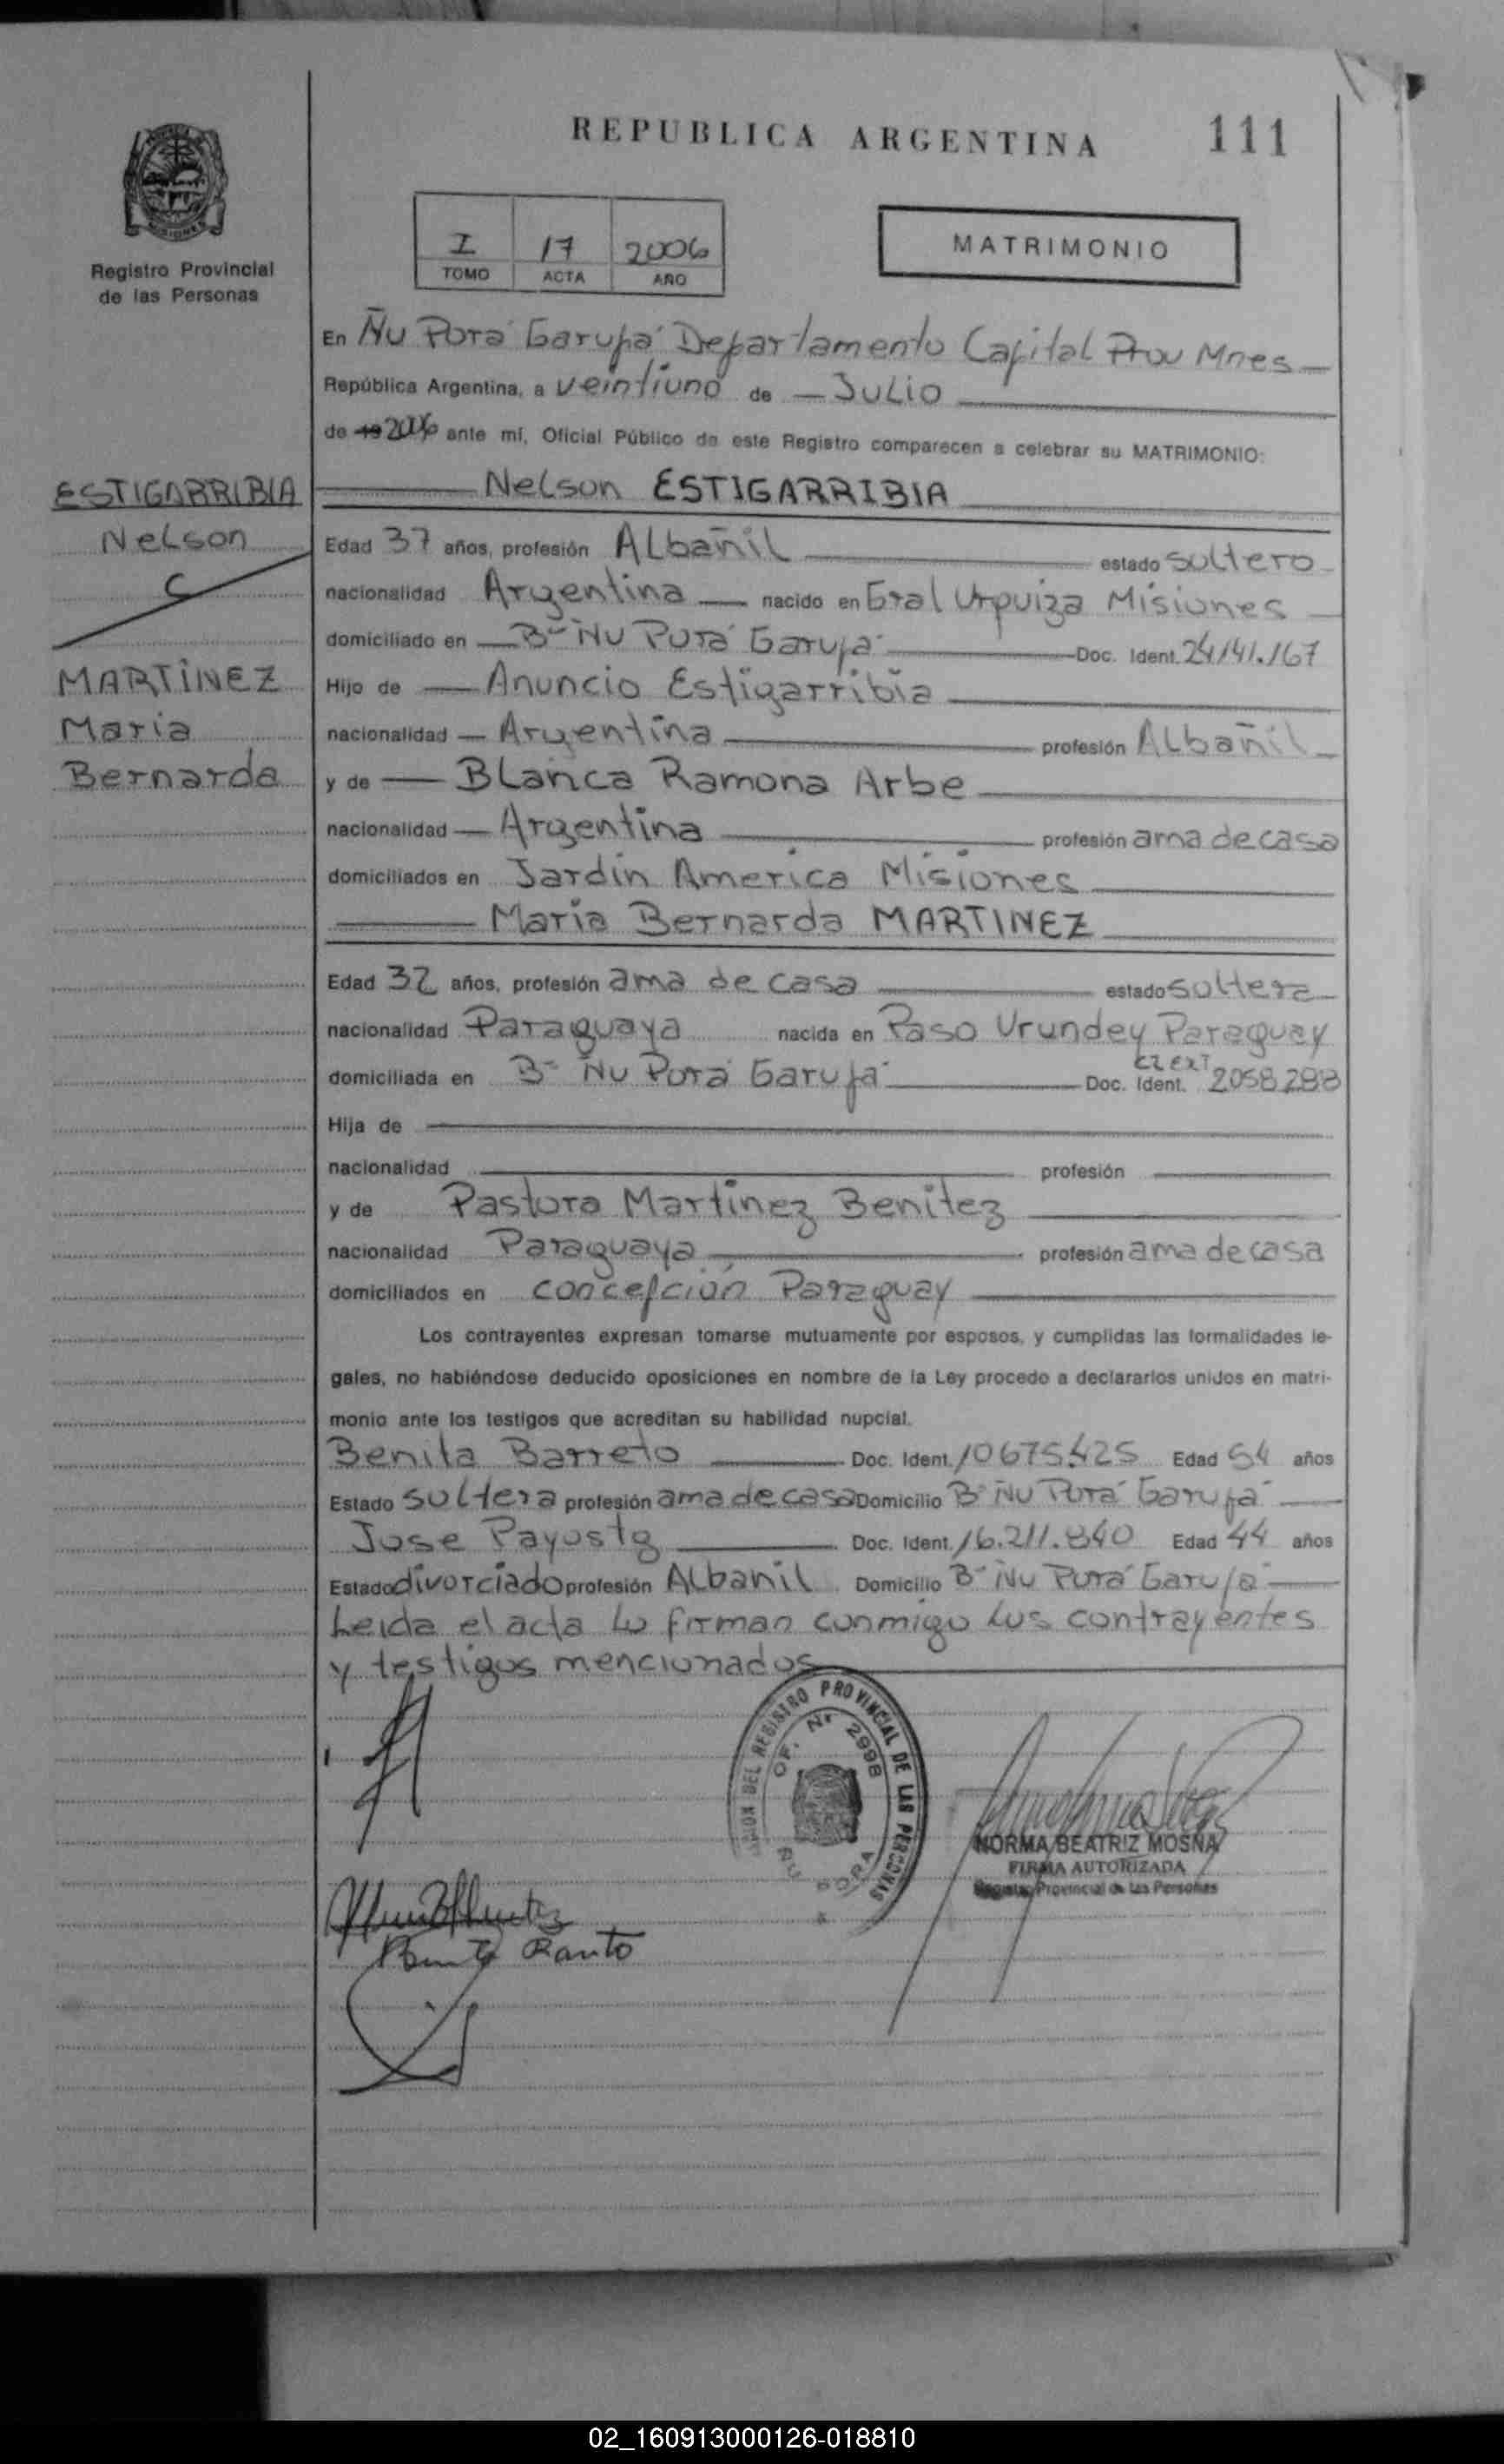 REPUBLICA ARGENTINA 111
MISIONES
Registro Provincial
de las Personas
I 17 2006
TOMO ACTA AÑO
MATRIMONIO
En Ñu Porá Garupá Departamento Capital Prov Mnes
República Argentina, a veintiuno de Julio
de 19 2006 ante mí, Oficial Público de este Registro comparecen a celebrar su MATRIMONIO:
ESTIGARRIBIA
Nelson
C
MARTINEZ
Maria
Bernarda
Nelson ESTIGARRIBIA
Edad 37 años, profesión Albañil estado soltero
nacionalidad Argentina nacido en Gral Urquiza Misiones
domiciliado en B- Ñu Porá Garupá Doc. Ident. 24141.167
Hijo de Anuncio Estigarribia
nacionalidad Argentina profesión Albañil
y de Blanca Ramona Arbe
nacionalidad Argentina profesión ama de casa
domiciliados en Jardín America Misiones
Maria Bernarda MARTINEZ
Edad 32 años, profesión ama de casa estado soltera
nacionalidad Paraguaya nacida en Paso Urundey Paraguay
domiciliada en B- Ñu Porá Garupá Doc. Ident. 2058288
Hija de
nacionalidad profesión
y de Pastora Martinez Benitez
nacionalidad Paraguaya profesión ama de casa
domiciliados en concepción Paraguay
Los contrayentes expresan tomarse mutuamente por esposos, y cumplidas las formalidades le-
gales, no habiéndose deducido oposiciones en nombre de la Ley procedo a declararlos unidos en matri-
monio ante los testigos que acreditan su habilidad nupcial.
Benita Barreto Doc. Ident. 10675425 Edad 54 años
Estado soltera profesión ama de casa Domicilio B- Ñu Porá Garupá
Jose Payustg Doc. Ident. 16.211.840 Edad 44 años
Estado divorciado profesión Albanil Domicilio B- Ñu Porá Garupá
Leida el acta lo firman conmigo los contrayentes
y testigos mencionados
DEL REGISTRO PROVINCIAL DE LAS PERSONAS
OF. Nr 2998
ÑU PORA
NORMA BEATRIZ MOSNA
FIRMA AUTORIZADA
Registro Provincial de las Personas
02_160913000126-018810